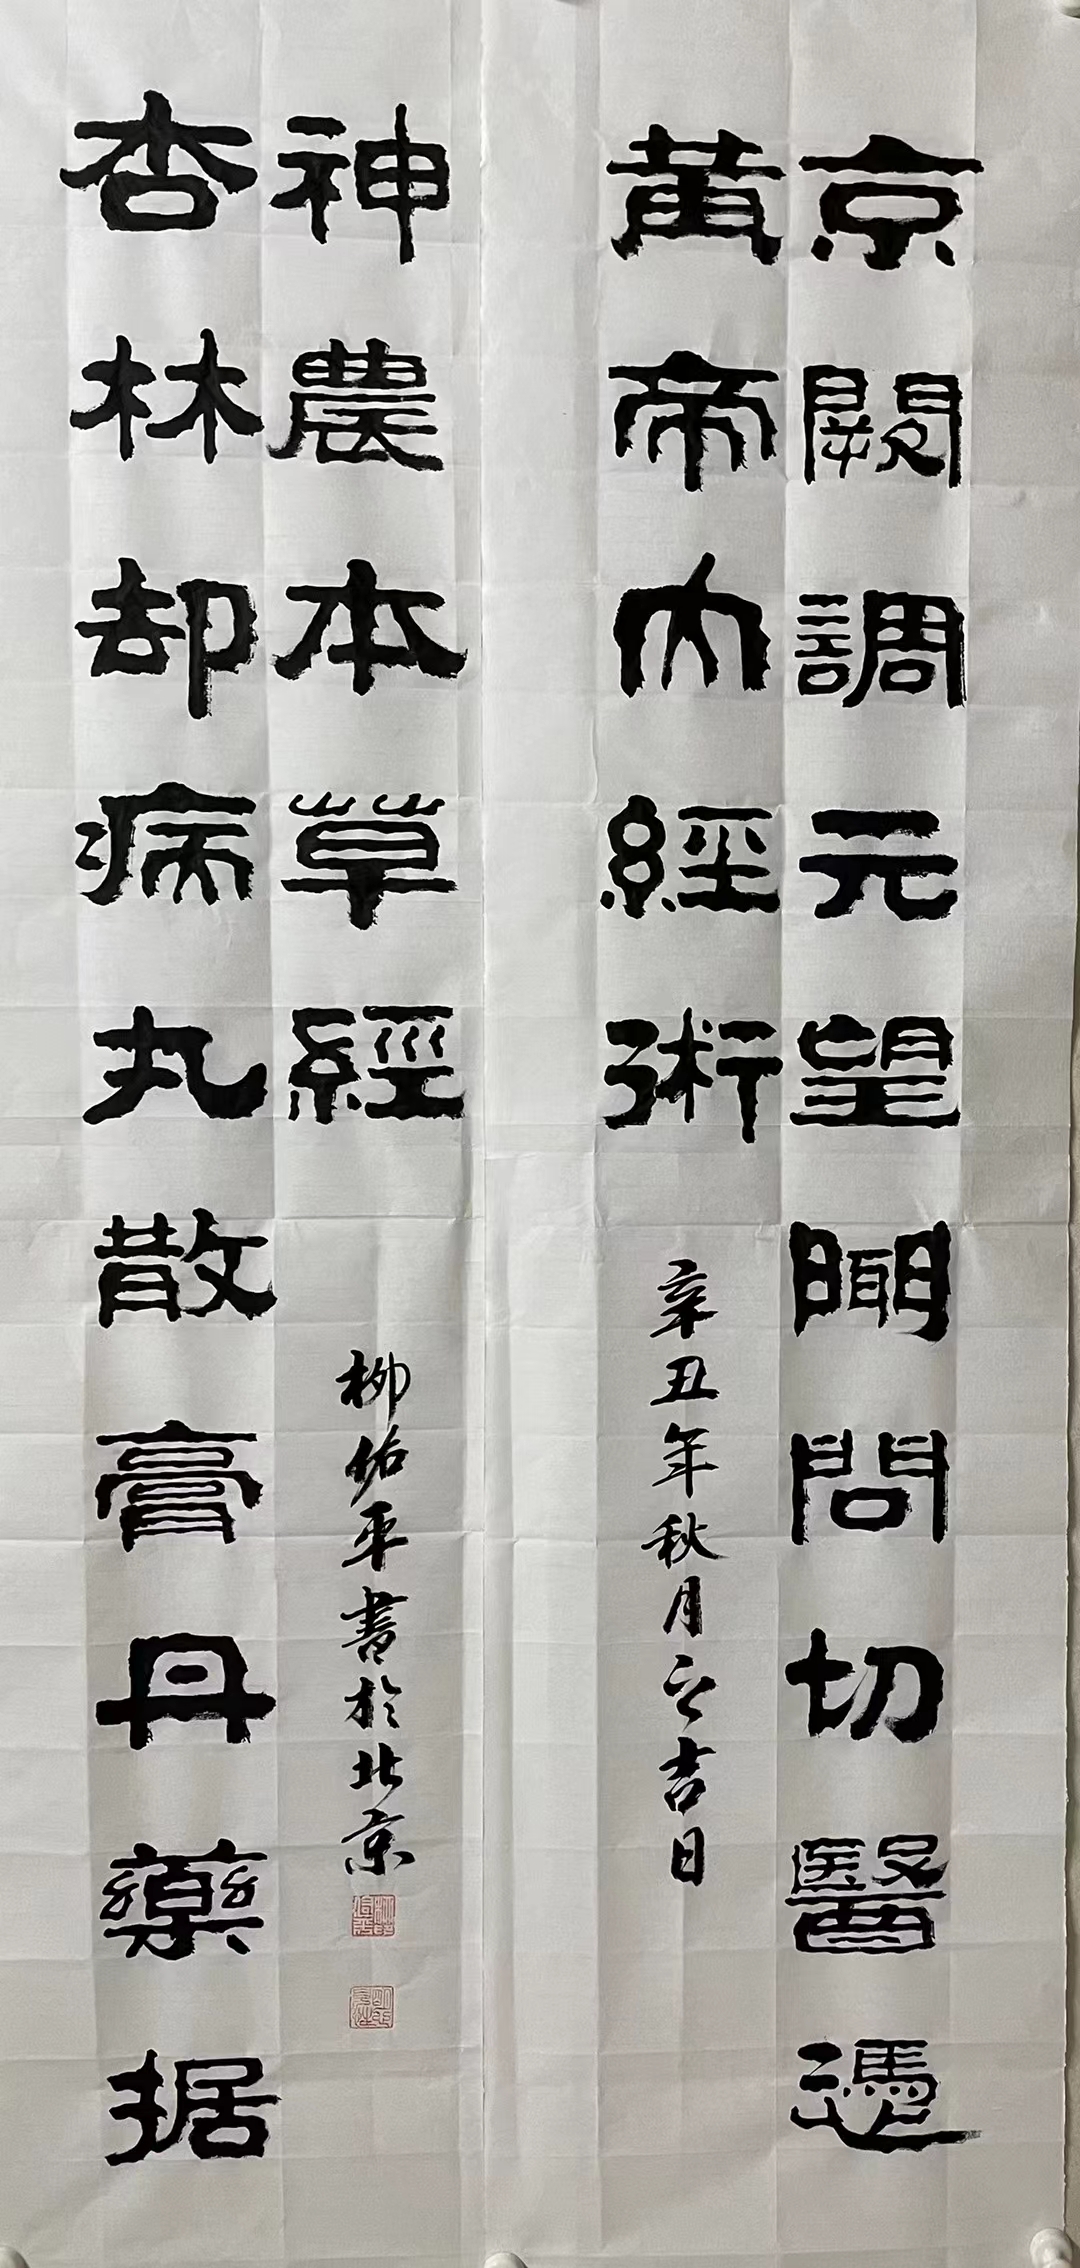 京闕調元望聞問切醫憑
黄帝内經術
辛丑年秋月之吉日
杏林却病丸散膏丹藥据
神農本草經
柳佑平書於北京